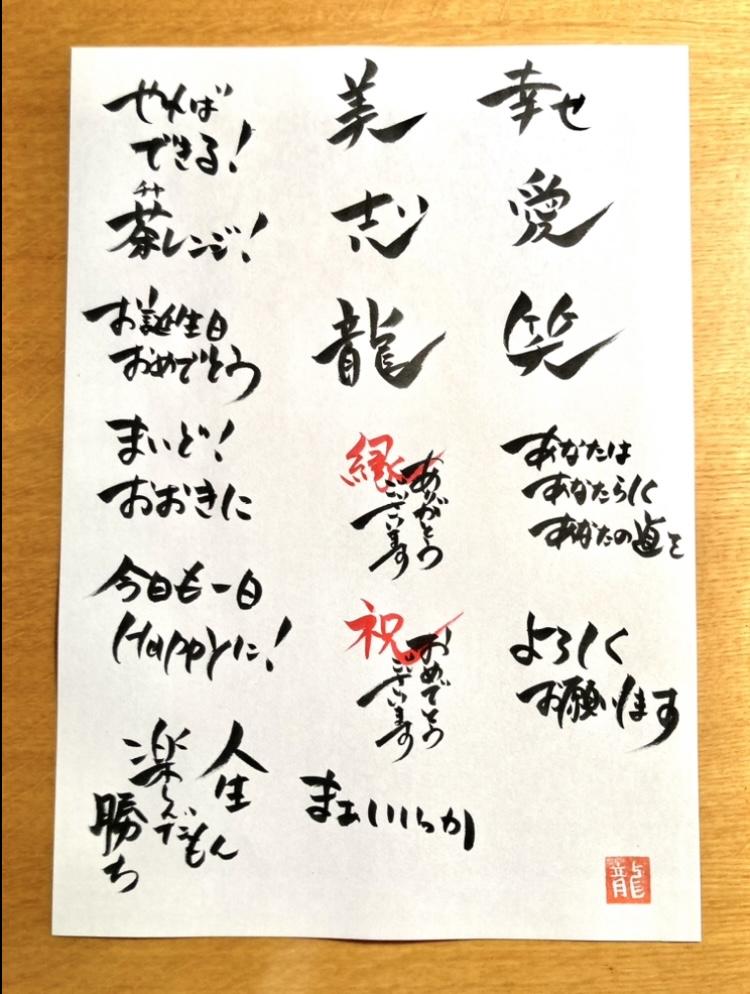 幸せ
愛
笑
あなたは
あなたらしく
あなたの道を
よろしく
お願いします
美
志
龍
縁
ありがとう
ございます
祝
おめでとう
ございます
まぁいいっか
やればできる!
チャ
茶レンジ!
お誕生日
おめでとう
まいど!
おおきに
今日も一日
Happyに!
人生
楽しんだもん
勝ち
龍